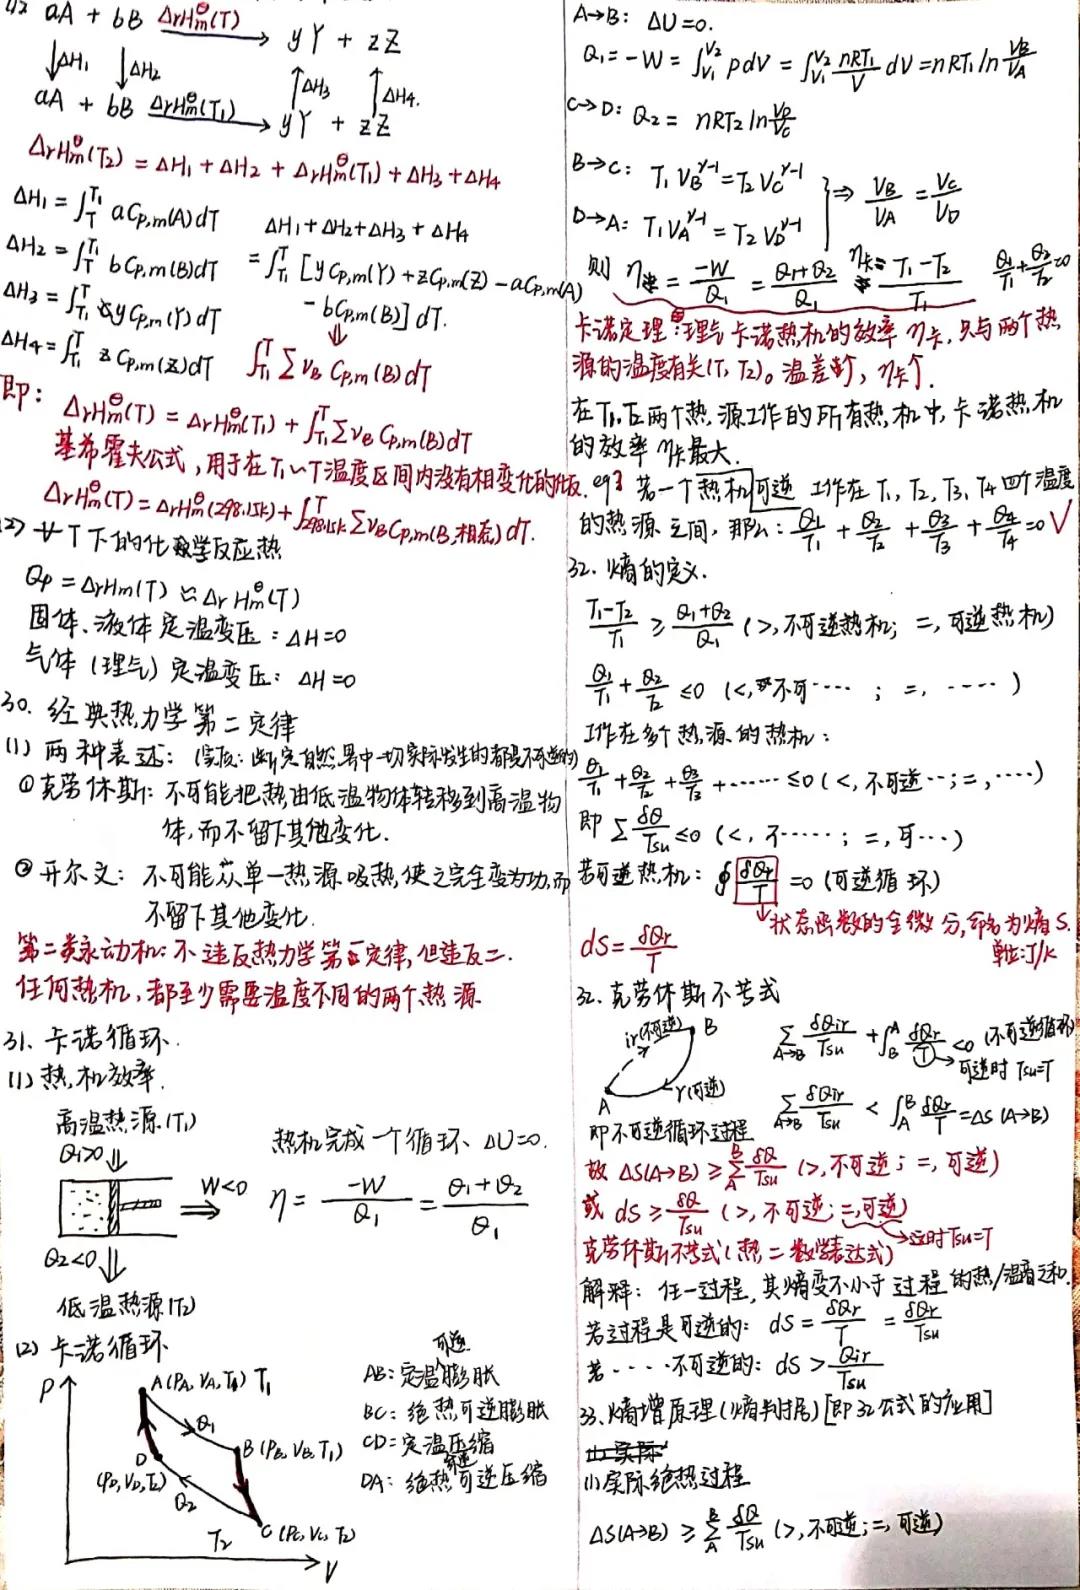 aA + bB ΔrHm^θ(T) → yY + zZ
↓ΔH1 ↓ΔH2 ↑ΔH3 ↑ΔH4.
aA + bB ΔrHm^θ(T1) → yY + zZ
ΔrHm^θ(T2) = ΔH1 + ΔH2 + ΔrHm^θ(T1) + ΔH3 + ΔH4
ΔH1 = ∫_T^T1 aCp,m(A)dT
ΔH2 = ∫_T^T1 bCp,m(B)dT
ΔH3 = ∫_T1^T yCp,m(Y)dT
ΔH4 = ∫_T1^T zCp,m(Z)dT
ΔH1 + ΔH2 + ΔH3 + ΔH4
= ∫_T1^T [yCp,m(Y) + zCp,m(Z) - aCp,m(A)
- bCp,m(B)] dT.
⇓
∫_T1^T ΣνB Cp,m(B)dT
即:
ΔrHm^θ(T) = ΔrHm^θ(T1) + ∫_T1^T ΣνB Cp,m(B)dT
基希霍夫公式,用于在T1~T温度区间内没有相变化的
ΔrHm^θ(T) = ΔrHm^θ(298.15K) + ∫_298.15K^T ΣνB Cp,m(B,相态)dT.
(2) T下的化学反应热
Qp = ΔrHm(T) ≈ ΔrHm^θ(T)
固体、液体定温变压:ΔH=0
气体(理气)定温变压:ΔH=0
30. 经典热力学第二定律
(1) 两种表述:(实质:断定自然界中一切实际发生的都是不可逆的)
①克劳休斯:不可能把热由低温物体转移到高温物
体,而不留下其他变化.
②开尔文:不可能从单一热源吸热使之完全变为功,而
不留下其他变化.
第二类永动机:不违反热力学第一定律,但违反二.
任何热机,都至少需要温度不同的两个热源
31. 卡诺循环.
(1) 热机效率.
高温热源(T1)
Q1>0⇓
W<0
⇒
Q2<0⇓
低温热源(T2)
热机完成一个循环 ΔU=0.
η = -W/Q1 = (Q1+Q2)/Q1
(2) 卡诺循环
P
A(PA, VA, T1) T1
Q1
B(PB, VB, T1)
D
(PD, VD, T2)
Q2
T2
C(PC, VC, T2)
V
可逆
AB:定温膨胀
BC:绝热可逆膨胀
CD:定温压缩
DA:绝热可逆压缩
A→B: ΔU=0.
Q1 = -W = ∫_V1^V2 pdV = ∫_V1^V2 nRT1/V dV = nRT1 ln VB/VA
C→D: Q2 = nRT2 ln VD/VC
B→C: T1VB^γ-1 = T2VC^γ-1
D→A: T1VA^γ-1 = T2VD^γ-1
⇒ VB/VA = VC/VD
则 η = -W/Q1 = (Q1+Q2)/Q1 η卡 = (T1-T2)/T1 Q1/T1 + Q2/T2 = 0
卡诺定理:理气卡诺热机的效率η卡,只与两个热
源的温度有关(T1, T2)。温差↑,η卡↑.
在T1,T2两个热源工作的所有热机中,卡诺热机
的效率η卡最大.
eg: 若一个热机可逆 工作在T1, T2, T3, T4四个温度
的热源之间,那么: Q1/T1 + Q2/T2 + Q3/T3 + Q4/T4 = 0 √
32. 熵的定义.
(T1-T2)/T1 ≥ (Q1+Q2)/Q1 (>,不可逆热机; =,可逆热机)
Q1/T1 + Q2/T2 ≤0 (<,不可····; =, ·····)
工作在多个热源的热机:
Q1/T1 + Q2/T2 + Q3/T3 + ······ ≤0 (<,不可逆··; =, ····)
即 Σ δQ/Tsu ≤0 (<,不·····; =,可···)
若可逆热机: ∮ δQr/T =0 (可逆循环)
↓状态函数的全微分,命名为熵S.
单位:J/K
dS = δQr/T
32. 克劳休斯不等式
ir(不可逆) B
A r(可逆)
Σ_A→B δQir/Tsu + ∫_B^A δQr/T <0 (不可逆循环)
可逆时 Tsu=T
Σ_A→B δQir/Tsu < ∫_A^B δQr/T = ΔS (A→B)
即不可逆循环过程
故 ΔS(A→B) ≥ Σ_A^B δQ/Tsu (>,不可逆; =,可逆)
或 dS ≥ δQ/Tsu (>,不可逆; =,可逆)
→这时Tsu=T
克劳休斯不等式(热二数学表达式)
解释: 任一过程,其熵变不小于过程的热/温商之和.
若过程是可逆的: dS = δQr/T = δQr/Tsu
若····不可逆的: dS > Qir/Tsu
33. 熵增原理(熵判据) [即32公式的应用]
(1) 实际绝热过程
ΔS(A→B) ≥ Σ_A^B δQ/Tsu (>,不可逆; =,可逆)